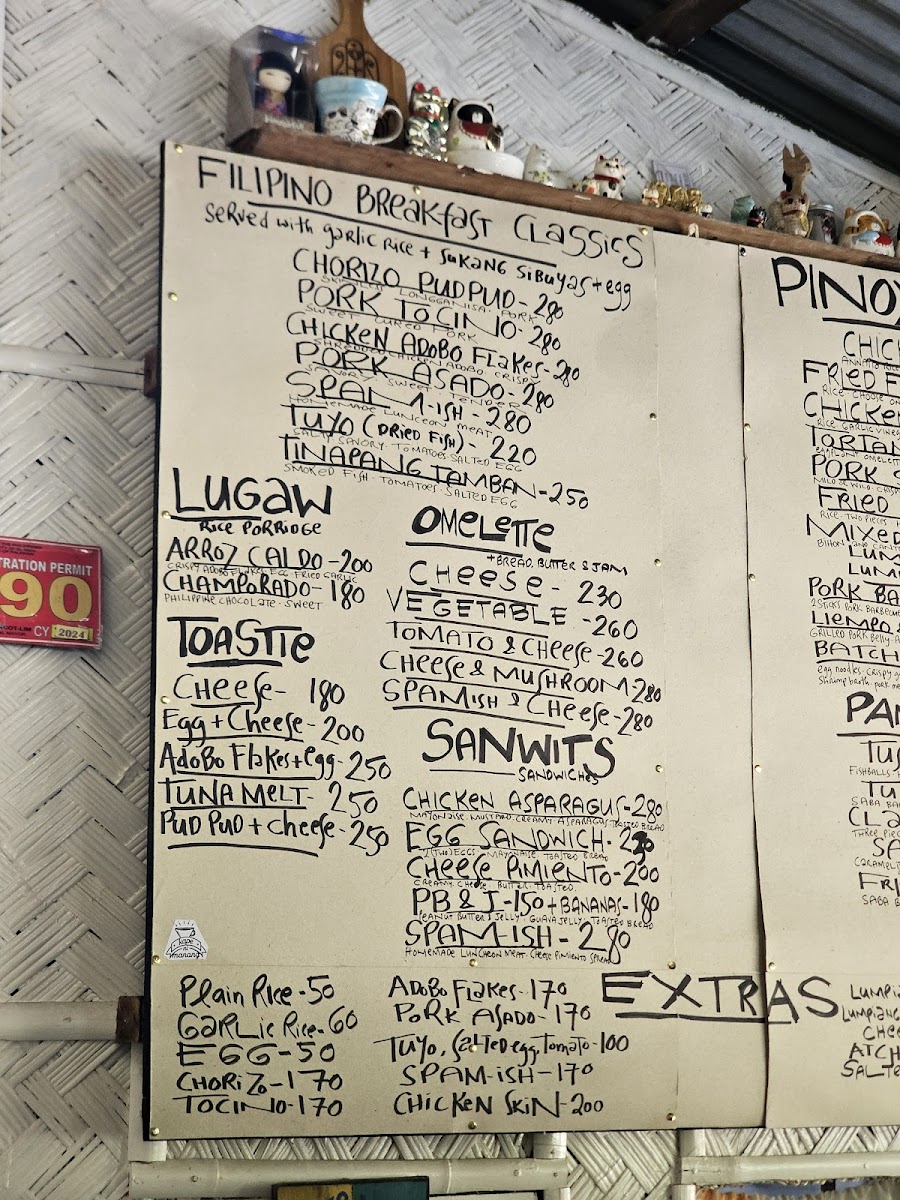 FILIPINO BREAKFAST CLASSICS
SERVED with garlic Rice + SUKANG SIBUYAS + egg
CHORIZO PUDPUD - 280
SKINLESS LONGGANISA. PORK
PORK TOCINO - 280
SWEET CURED PORK
CHICKEN ADOBO FLAKES - 280
SHREDDED CHICKEN ADOBO. CRISPY
PORK ASADO - 280
SAVORY SWEET TENDER
SPAM-ISH - 280
HOMEMADE LUNCHEON MEAT
TUYO (DRIED FISH) - 220
SALTY SAVORY. TOMATOES SALTED EGG
TINAPANG TAMBAN - 250
SMOKED FISH - TOMATOES - SALTED EGG
LUGAW
RICE PORRIDGE
ARROZ CALDO - 200
CRISPY ADOBO FLAKES. EGG. FRIED GARLIC
CHAMPORADO - 180
PHILIPPINE CHOCOLATE - SWEET
TOASTIE
CHEESE - 180
Egg + Cheese - 200
ADOBO Flakes + egg - 250
TUNA MELT - 250
PUD PUD + cheese - 250
OMELETTE
+ BREAD, BUTTER & JAM
CHEESE - 230
VEGETABLE - 260
TOMATO & CHEESE - 260
CHEESE & MUSHROOM 280
SPAMISH & CHEESE - 280
SANWITS
SANDWICHES
CHICKEN ASPARAGUS - 280
MAYONAISE. MUSTARD. CREAMY. ASPARAGUS. TOASTED BREAD
EGG SANDWICH -
2 (TWO) EGGS - MAYONAISE TOASTED BREAD
CHEESE PIMIENTO - 200
CREAMY. CHEESE. BUTTER. TOASTED.
PB & J - 150 + BANANAS - 180
PEANUT BUTTER & JELLY - GUAVA JELLY - TOASTED BREAD
SPAM-ISH - 280
HOMEMADE LUNCHEON MEAT CHEESE PIMIENTO SPREAD
kape ni manang
Plain Rice - 50
GARLIC RICE - 60
EGG - 50
CHORIZO - 170
TOCINO - 170
ADOBO FLAKES - 170
PORK ASADO - 170
TUYO, SALTED egg, TOMATO - 100
SPAM-ISH - 170
CHICKEN SKIN - 200
EXTRAS
LUMPIA
LUMPIANG
CHEE
ATCH
SALTE
PINOY
CHIC
FRIED F
CHICKEN
TORTAN
PORK S
FRIED
RICE - TWO PIECES
MIXED
LUM
LUMI
PORK BA
2 STICKS PORK BARBECUE
LIEMPO &
GRILLED PORK BELLY
BATCH
egg noodles. crispy
shrimp broth. pork
PAN
TU
FISHBALLS
TU
SABA BA
CLA
THREE PIEC
SA
CARAMEL
FRI
SABA B
TRATION PERMIT
90
CY 2024